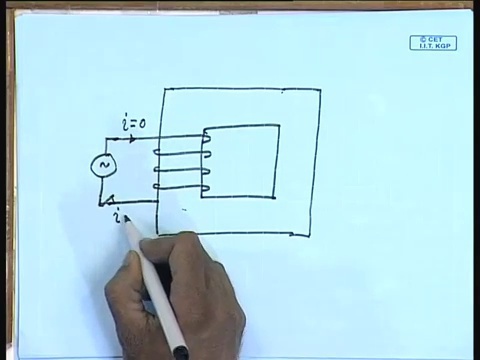 © CET
I.I.T. KGP
i=0
~
i